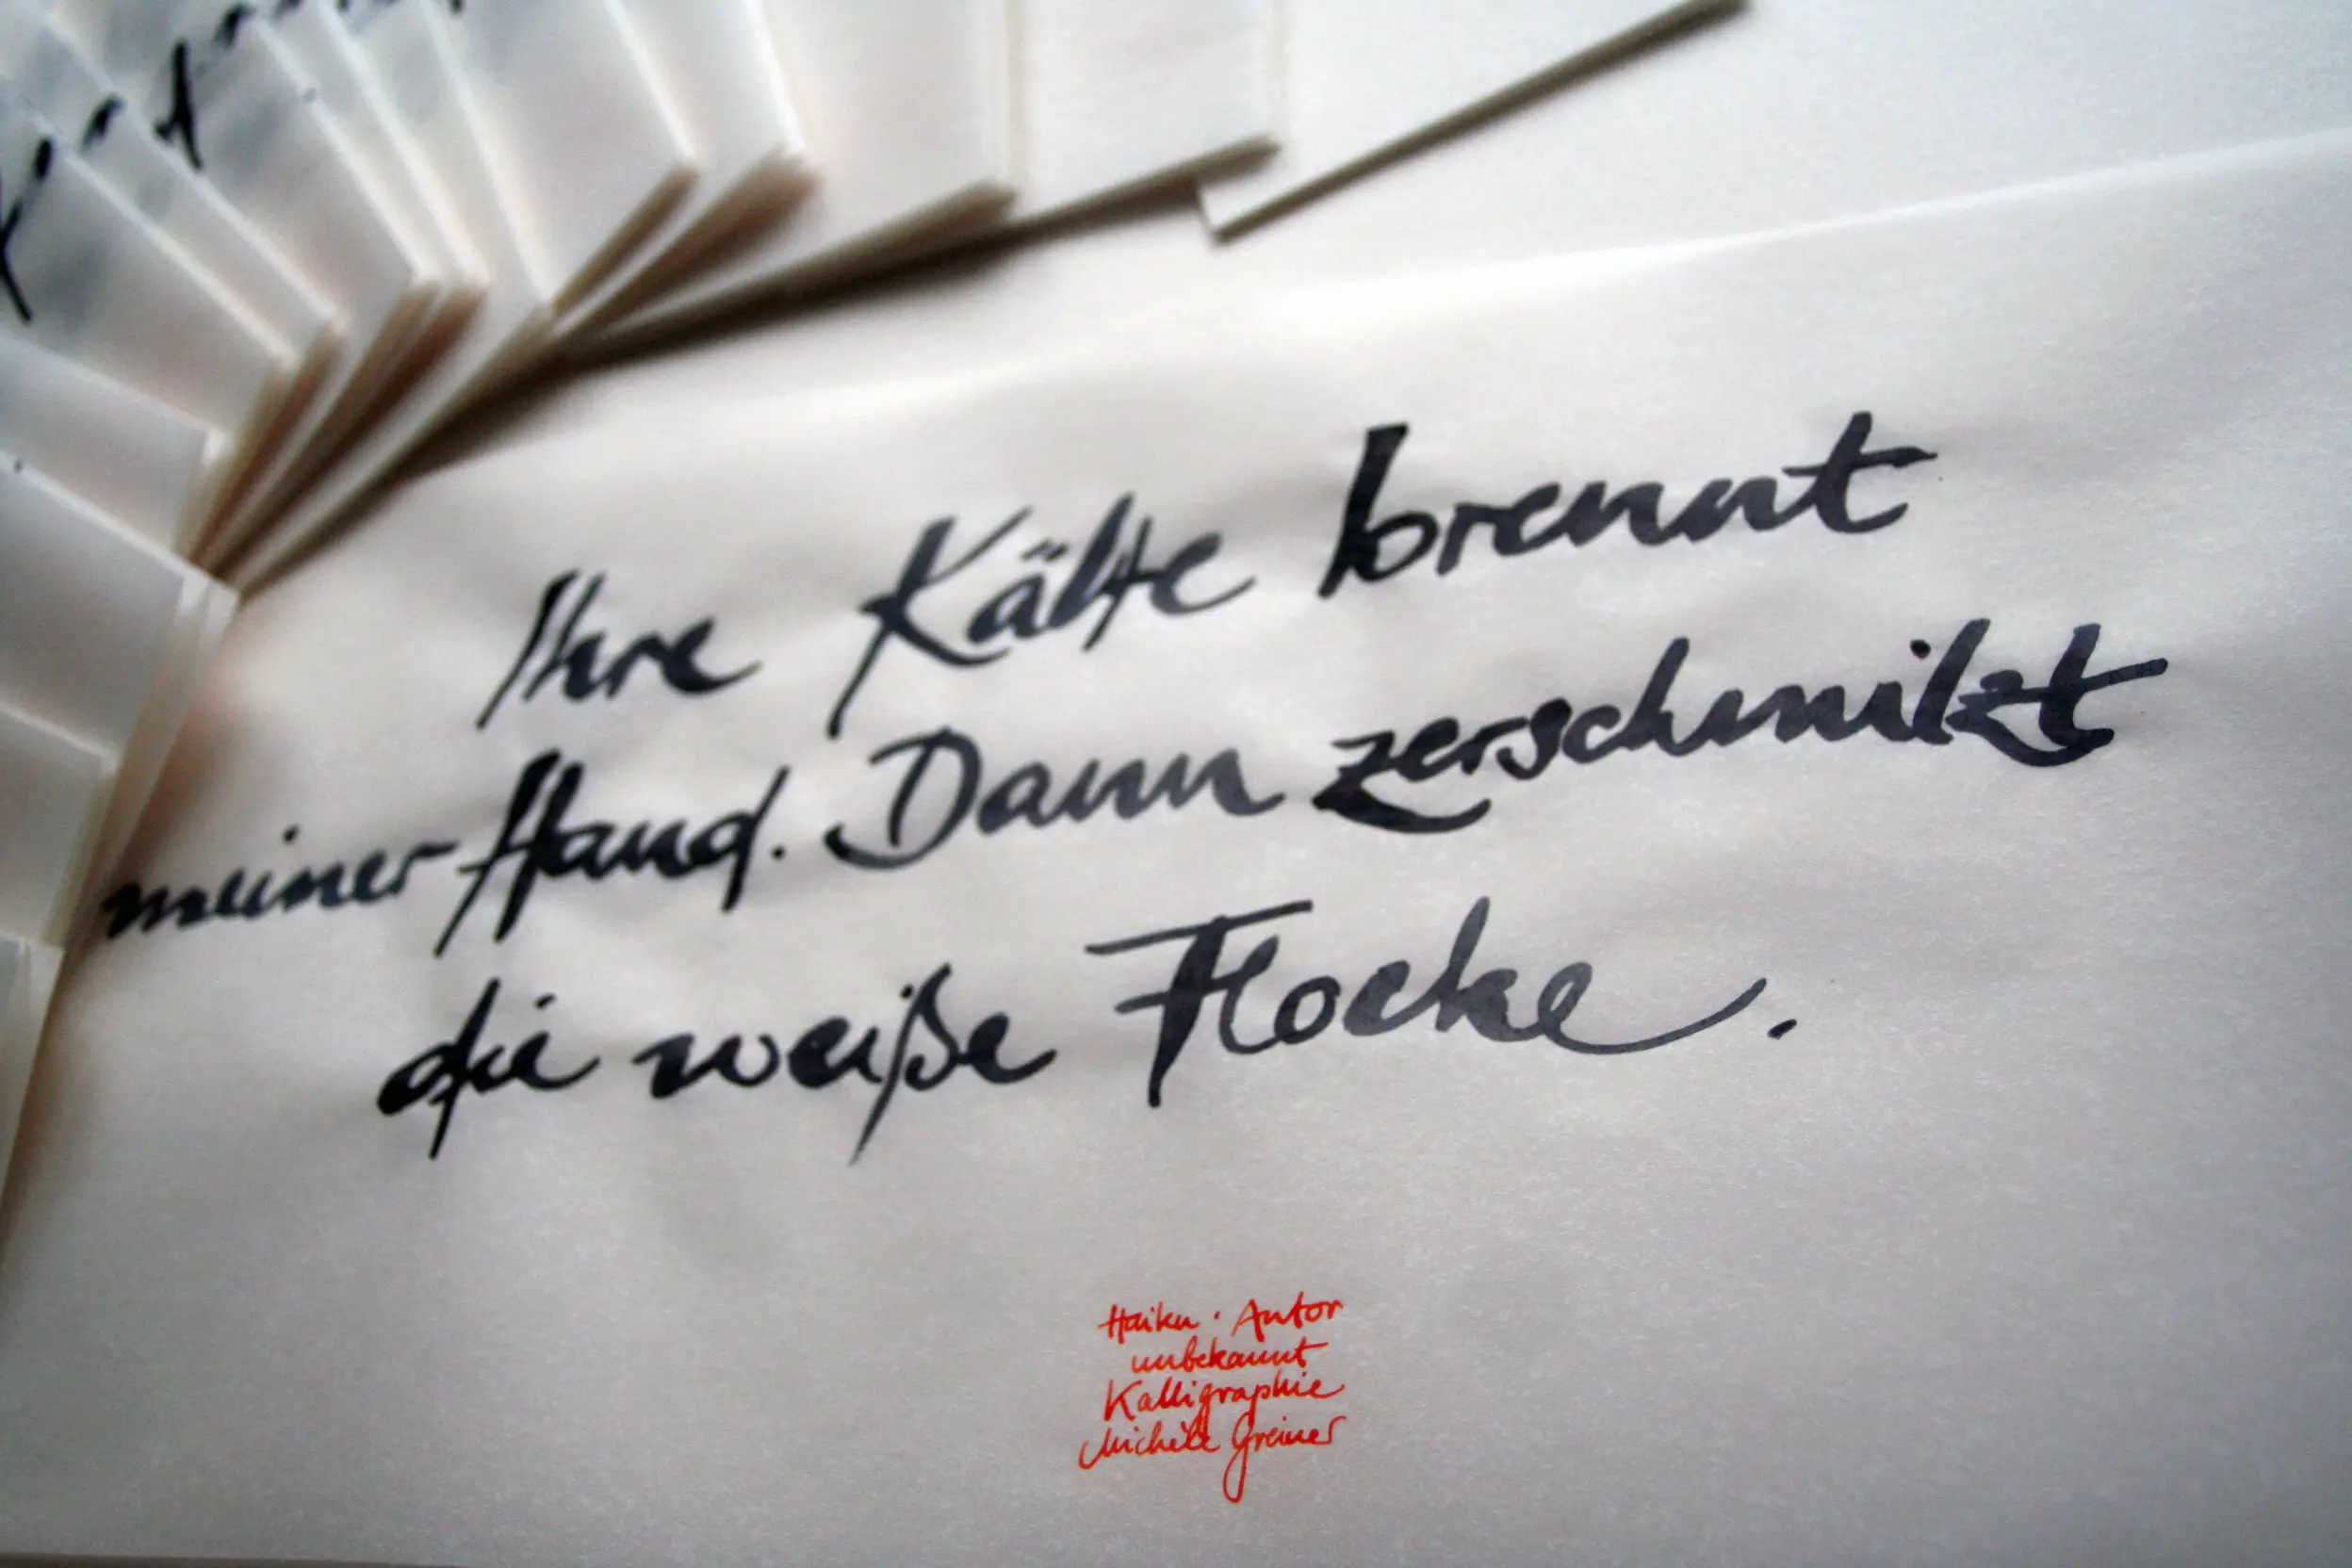 Ihre Kälte brennt
meiner Hand. Dann zerschmilzt
die weiße Flocke.
Haiku · Autor
unbekannt
Kalligraphie
Michèle Greiner